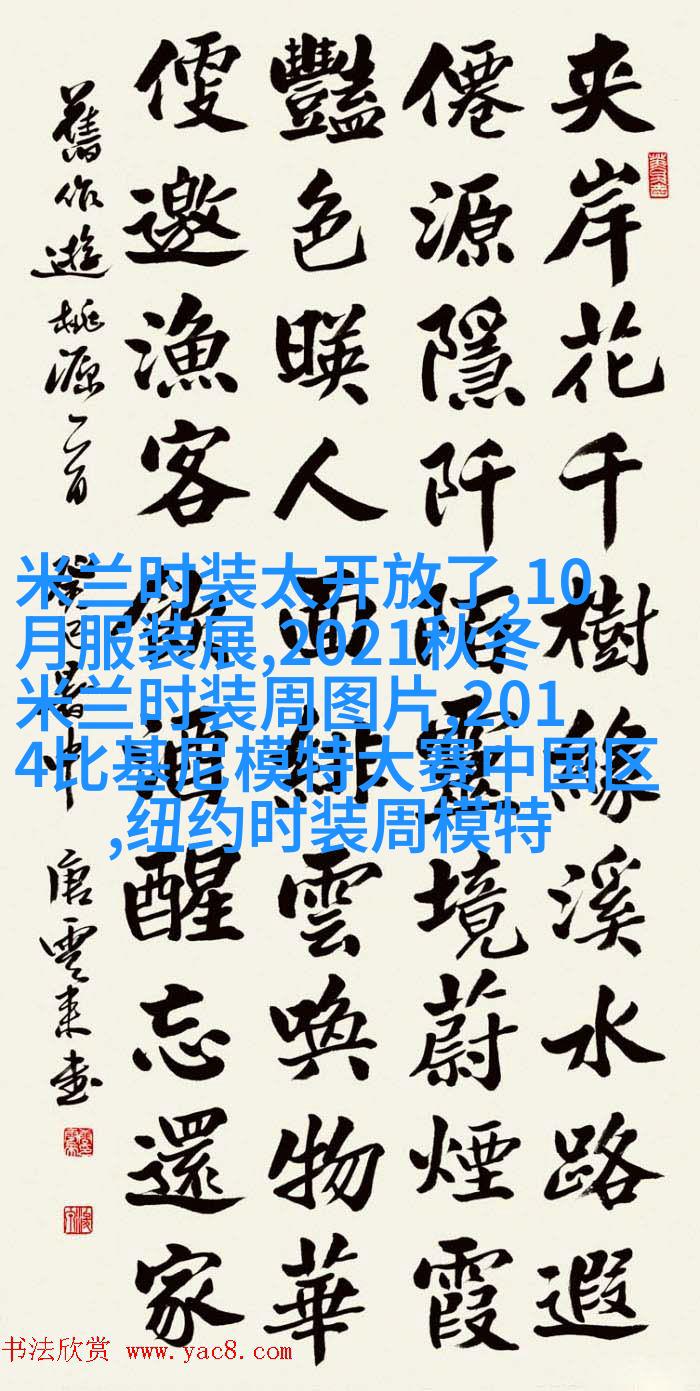 夾岸花千樹緣溪水路遐
僊源隱阡陌靈境蔚煙霞
豔色暎人面緋雲喚物華
便邀漁客酒醒忘還家
舊作遊桃源二首 癸巳暑中 唐雲來書
米兰时装太开放了,10
月服装展,2021秋冬
米兰时装周图片,201
4比基尼模特大赛中国区
,纽约时装周模特
书法欣赏 www.yac8.com